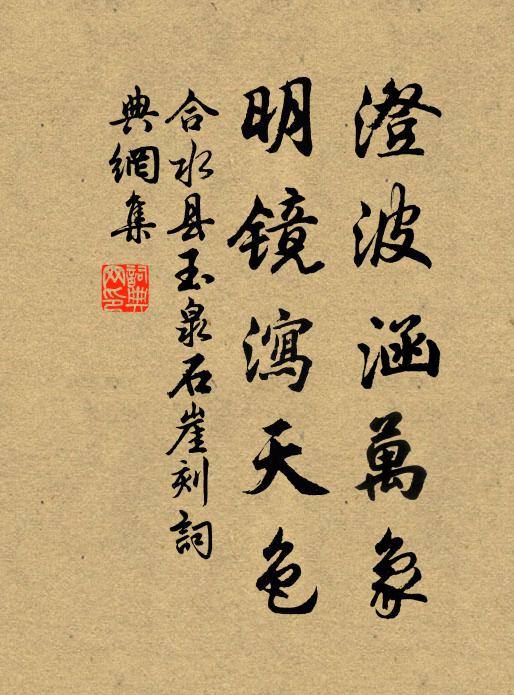 澄波涵萬象
明镜瀉天色
合水县玉泉石崖刻詞
典網集
詞典
网印